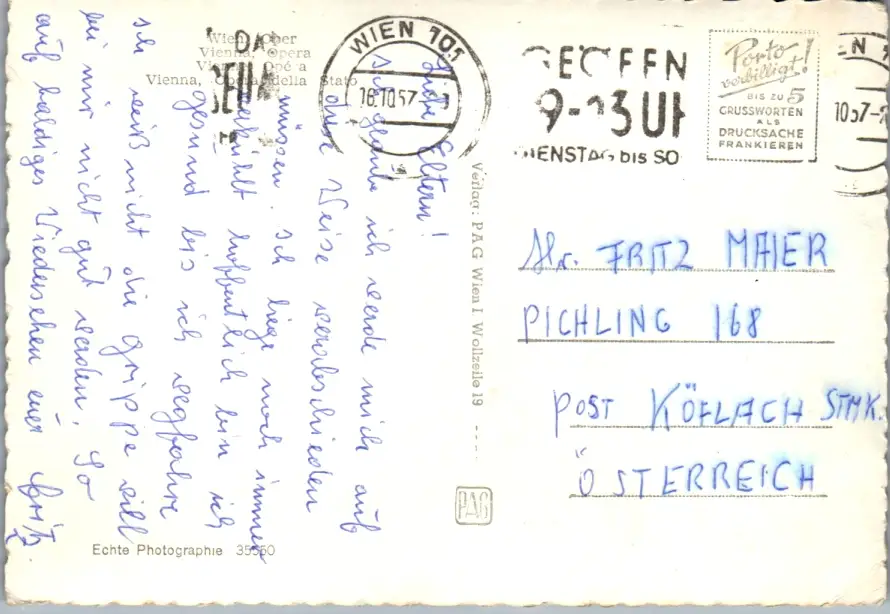 Wien, Oper
Vienna, Opera
Vienna, Opera della Stato
WIEN 101
16.10.57
GEÖFFN
9-13 UH
DIENSTAG bis SO
Porto verbilligt!
BIS ZU 5
GRUSSWORTEN
ALS
DRUCKSACHE
FRANKIEREN
N 1
10 57
Liebe Eltern!
glaube ich werde mich auf
diese Weise verabschieden
müssen. Ich liege noch immer
hoffentlich bin ich
gesund bis ich wegfahre
Ich weiß nicht die grippe will
bei mir nicht gut werden. So
auf baldiges Wiedersehen euer Fritz
Verlag: PAG Wien I Wollzeile 19
PAG
Hr. FRITZ MAIER
PICHLING 168
POST KÖFLACH STMK.
ÖSTERREICH
Echte Photographie